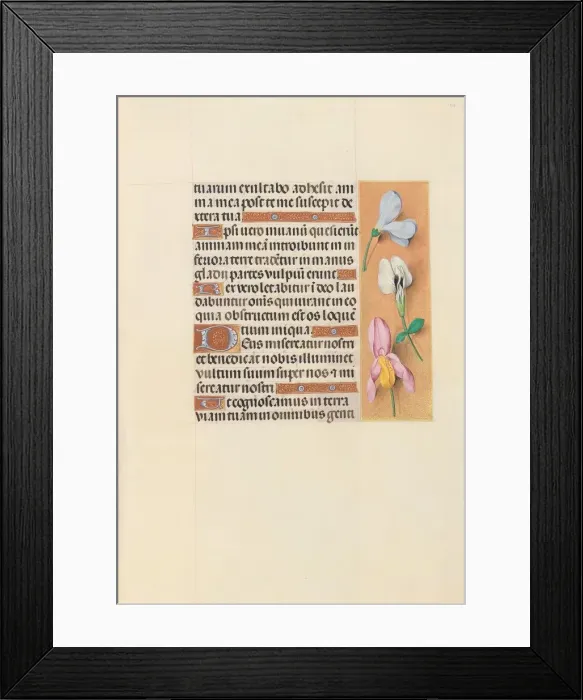 tuarum exultabo adhesit ani
ma mea post te me suscepit de
xtera tua
Ipsi vero in vanū quesierūt
animam meā introibunt in in
feriora terre tradētur in manus
gladij partes vulpiū erunt
Rex vero letabitur ī deo lau
dabuntur om̄s qui iurant in eo
quia obstructum est os loquē
tium iniqua
Deus misereatur nostri
et benedicat nobis illuminet
vultum suum super nos ⁊ mi
sereatur nostri
Ut cognoscamus in terra
viam tuam in omnibus genti